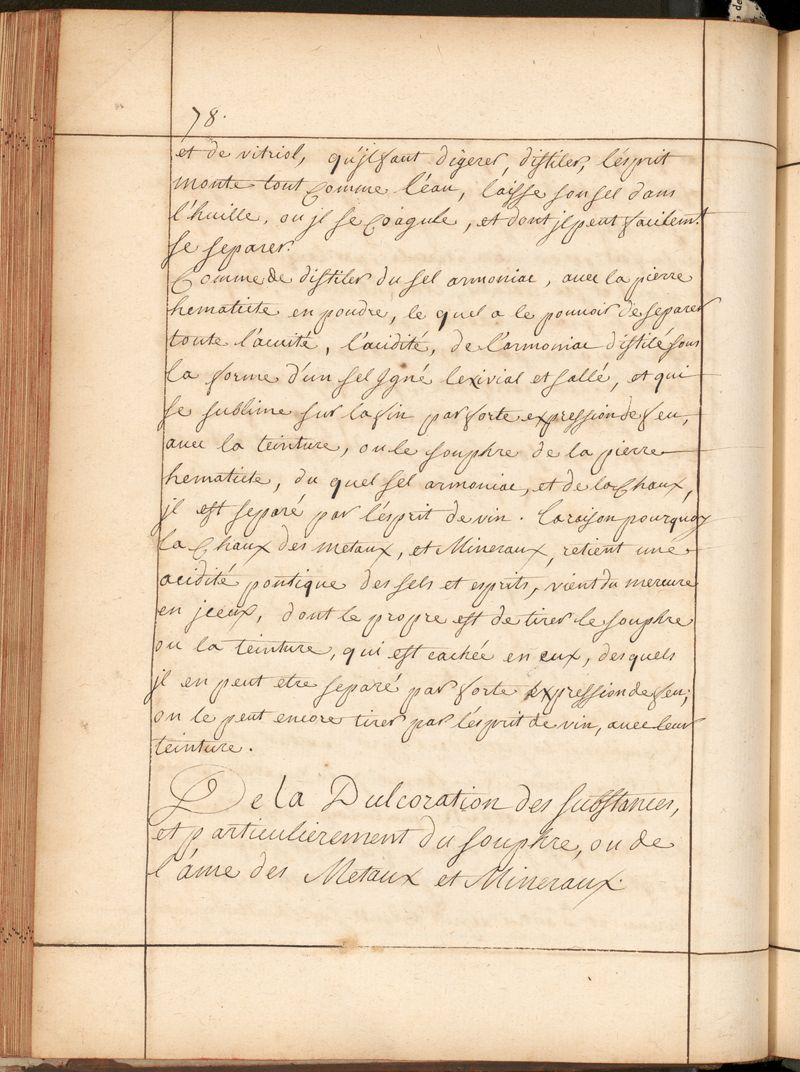 78.
et de vitriol, qu'jl faut digerer, distiler, l'ésprit
monte tout Comme l'éau, laisse son sel dans
l'huille, ou jl se Coagule, et dont jl peut facilemt.
se separer.
Comme de distiler du sel armoniac, avec la pierre
hematicte en poudre, le quel a le pouvoir de separer
toute l'acuité, l'acidité, de l'armoniac distilé sous
la forme d'un sel Jgné lexivial et sallé, et qui
se sublime sur la fin par forte expression de feu,
avec la teinture, ou le souphre de la pierre
hematicte, du quel sel armoniac, et de la Chaux,
jl est separé par l'ésprit de vin. La raison pourquoy
la Chaux des metaux, et Mineraux, retient une
acidité pontique des sels et esprits, vient du mercure
en jceux, dont le propre est de tirer le souphre
ou la teinture, qui est cachée en eux, desquels
jl en peut etre separé par forte expression de feu;
on le peut encore tirer par l'ésprit de vin, avec leur
teinture.
De la Dulcoration des substances,
et particulierement du souphre, ou de
l'áme des Metaux et Mineraux.